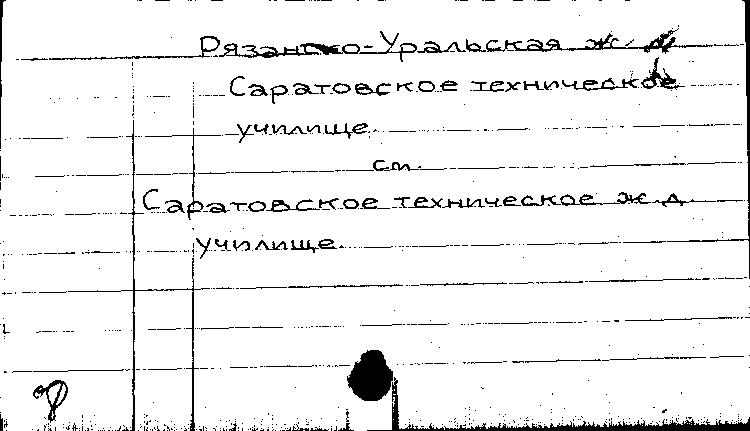 Рязанско-Уральская ж. д.
Саратовское техническое
училище.
см.
Саратовское техническое ж.д.
училище.